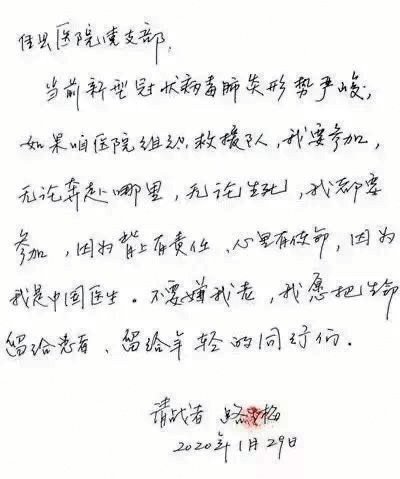 佳县医院党支部，
当前新型冠状病毒肺炎形势严峻，
如果咱医院组织救援队，我要参加，
无论奔赴哪里，无论生死，我都要
参加，因为肩上有责任、心里有使命，因为
我是中国医生。不要嫌我老，我愿把生命
留给患者、留给年轻的同行们。
请战者 路 梅
2020年1月29日